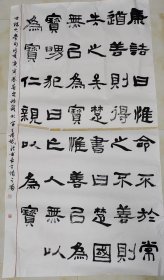 康誥曰惟命不於常
道善則得之不善則
失之矣楚書曰楚國
無以為寶惟善以為
寶舅犯曰亡人無以
為寶仁親以為寶